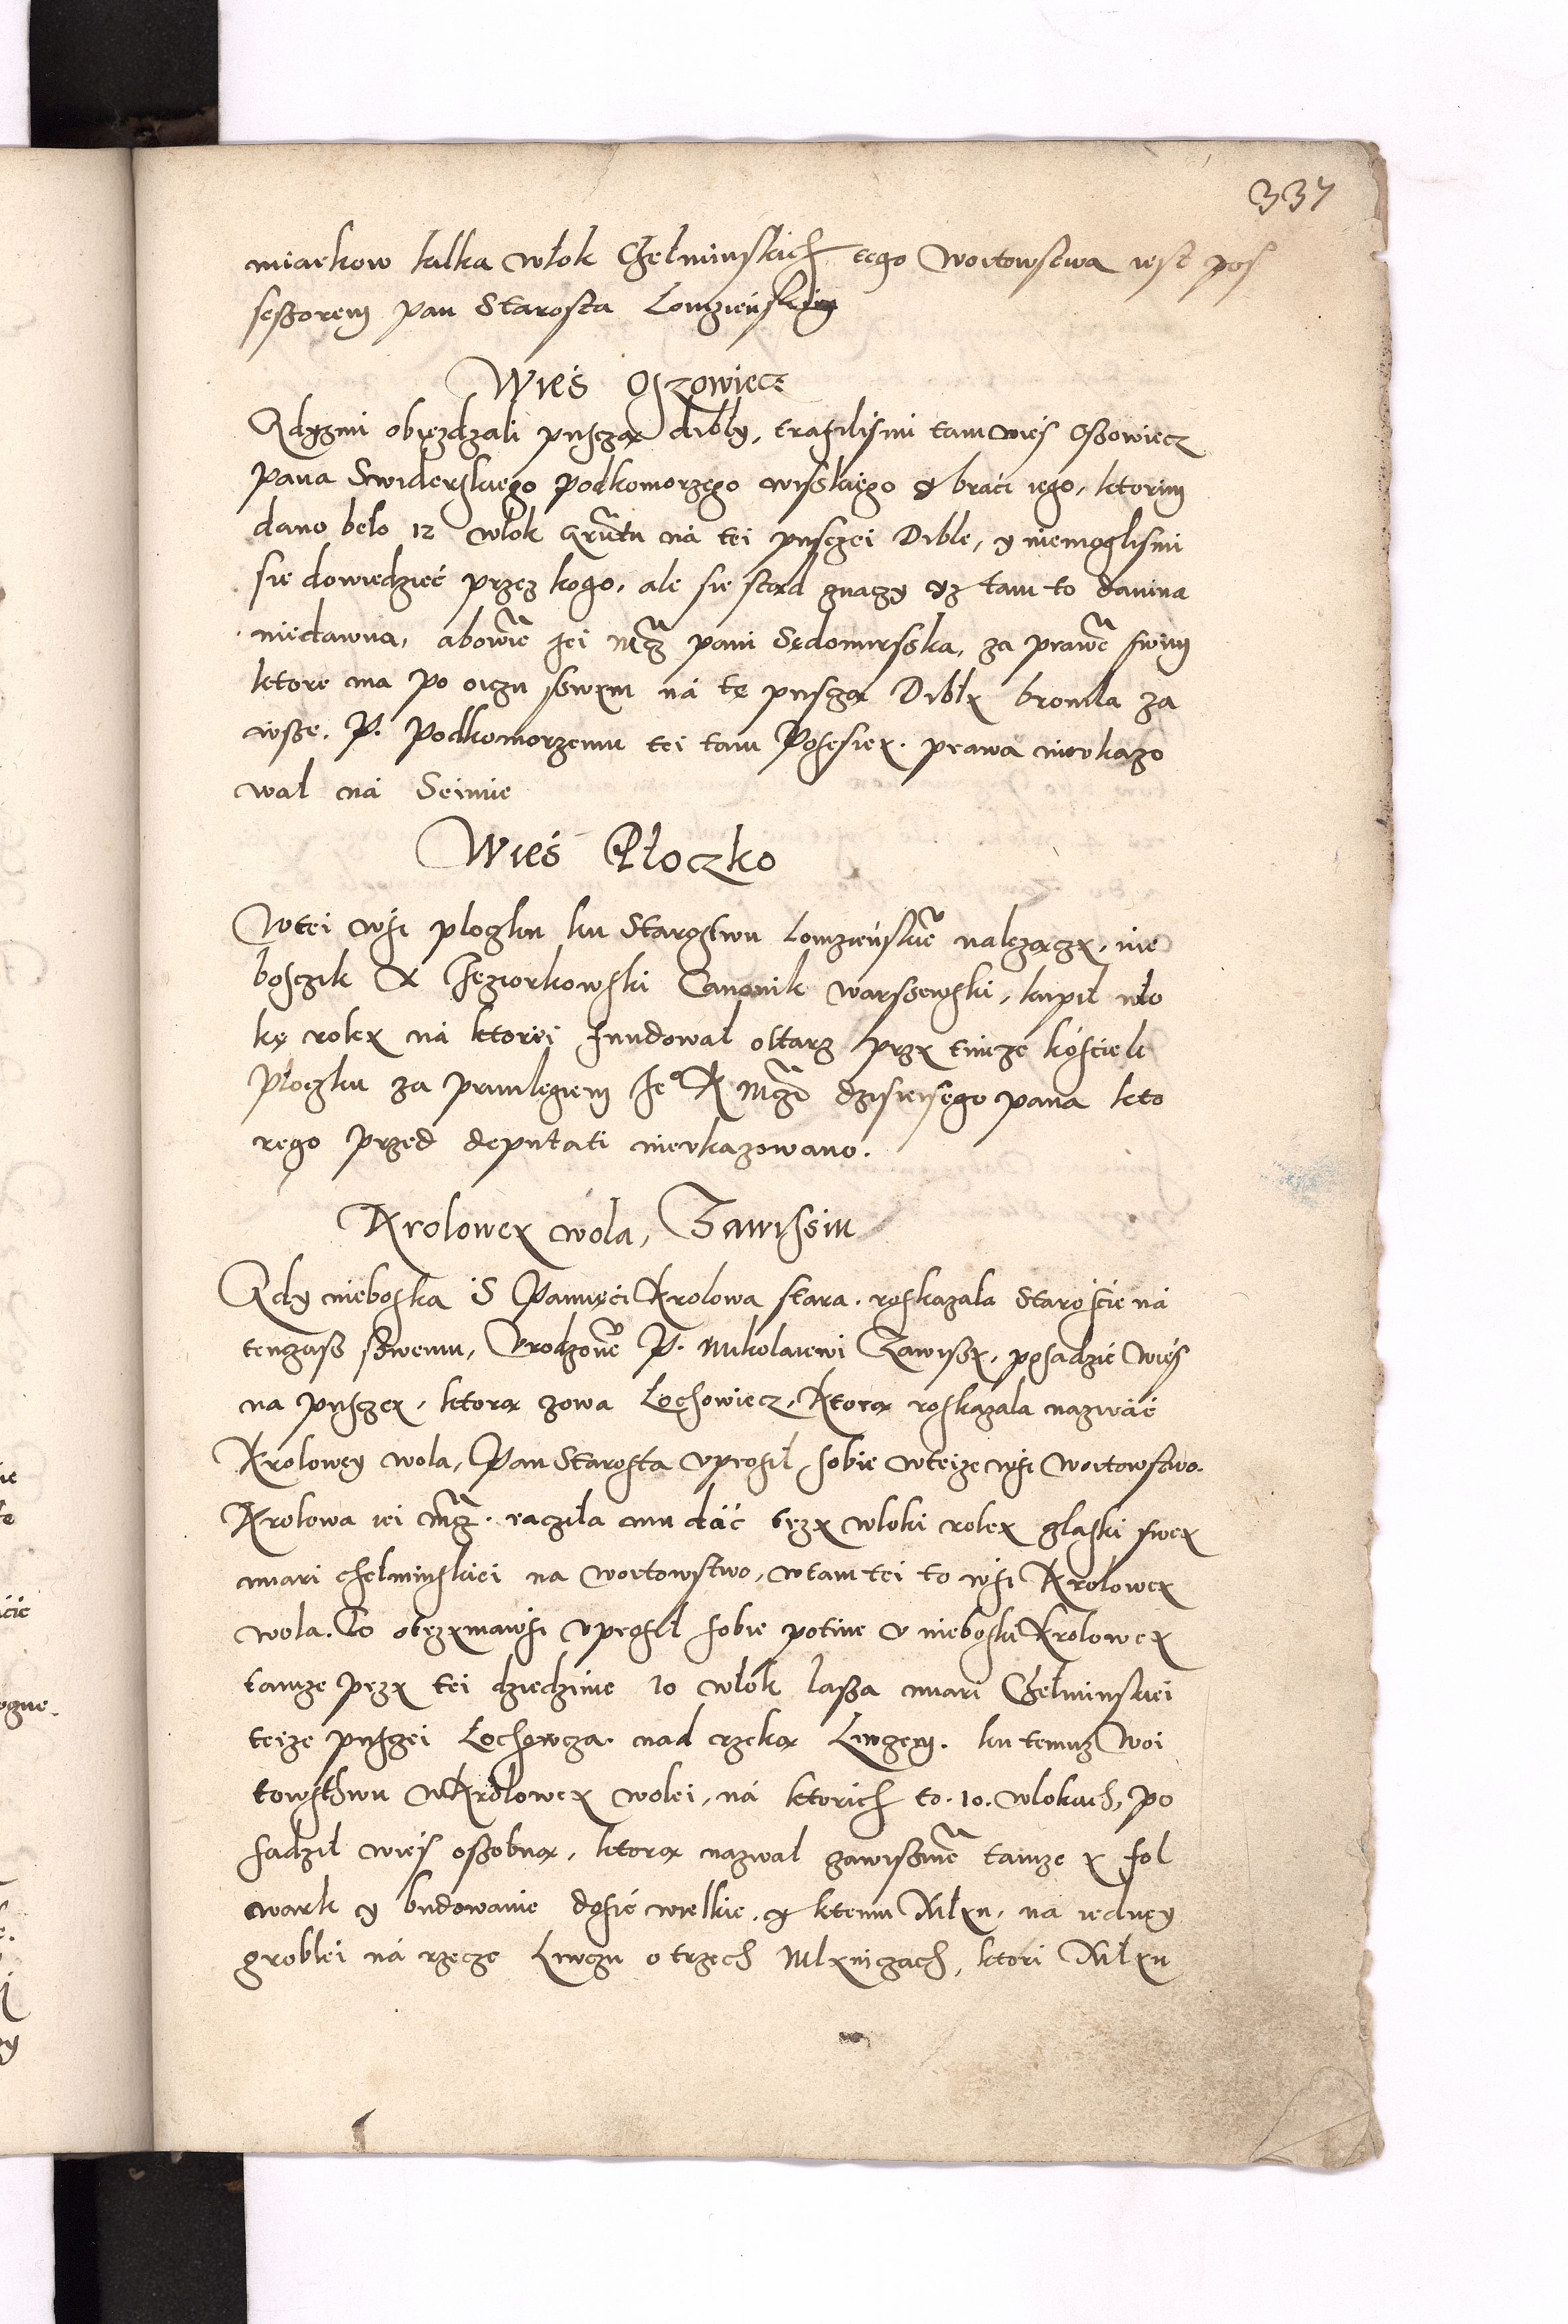 337
miarkow kilka włok Chełminskich tego woitowstwa iest pos
seßorem pan Starosta Lomzienski
Wieś Oszowiecz
Gdyzmi obiezdzali pusczą dibły, trafilismi tam wieś Oßowiecz
pana Swiderskiego podkomorzego wiskiego y braci iego, ktorim
dano beło 12 włok grūtu ná tei pusczei Dible, y niemoglismi
sie dowiedzieć przez kogo, ale sie stąd znaczy yz tam to danina
niedawna, abowiē Jei Mcz pani Sędomirsska, za prawē swim
ktore ma po oiczu sswym ná tę pusczą Dibły bronila za
wsze. P. Podkomorzemu tei tam Posesiey. prawa nieukazo
wal ná Seimie
Wieś Płoczko
Wtei wsi ploczku ku Starostwu Lomzienskiē nalezączy, nie
bosczik X Jeziorkowski Canonik warssewski, kupił wlo
kę roley ná ktorei fundował ołtarz przy timze kościele
Płoczku za priuilegiem Je° K Mczi dzisieisego pana kto
rego przed deputati nieukazowano.
Krolowey wola, Zawissin
Gdy nieboska S Pamięci Krolowa stara. roskazala Staroscie ná
tenczass sswemu, Urodzonē P. Mikolaiewi Zawißy, posadzic wies
na pusczey, ktorą zowa Lochowiecz, Ktorą roskazala nazwać
Krolowey wola, Pan Starosta uprosil sobie wteize wsi woitowstwo.
Krolowa iei mcz. raczila mu dáć trzy wloki roley zlaski swey
miari chelminskiei na woitowstwo, wtam tei to wsi Krolowey
wola. Co otrzymawsi uprosil sobie potim u nieboski Krolowey
tamze przy tei dziedzinie 10 wlok laßa miari Chełminskiei
teize pusczei Lochowcza. nad rzeką Liwczem. ku temuz woi
towsthwu wKrolowey wolei, ná ktorich to. 10. wlokach, po
sadzil wieś oßobną, ktorą nazwal zawißinē tamze y fol
wark y budowanie dosić wielkie, y ktemu Młyn, na iedney
groblei ná rzecze Liwczu o trzech Młyniczach, ktori Młyn